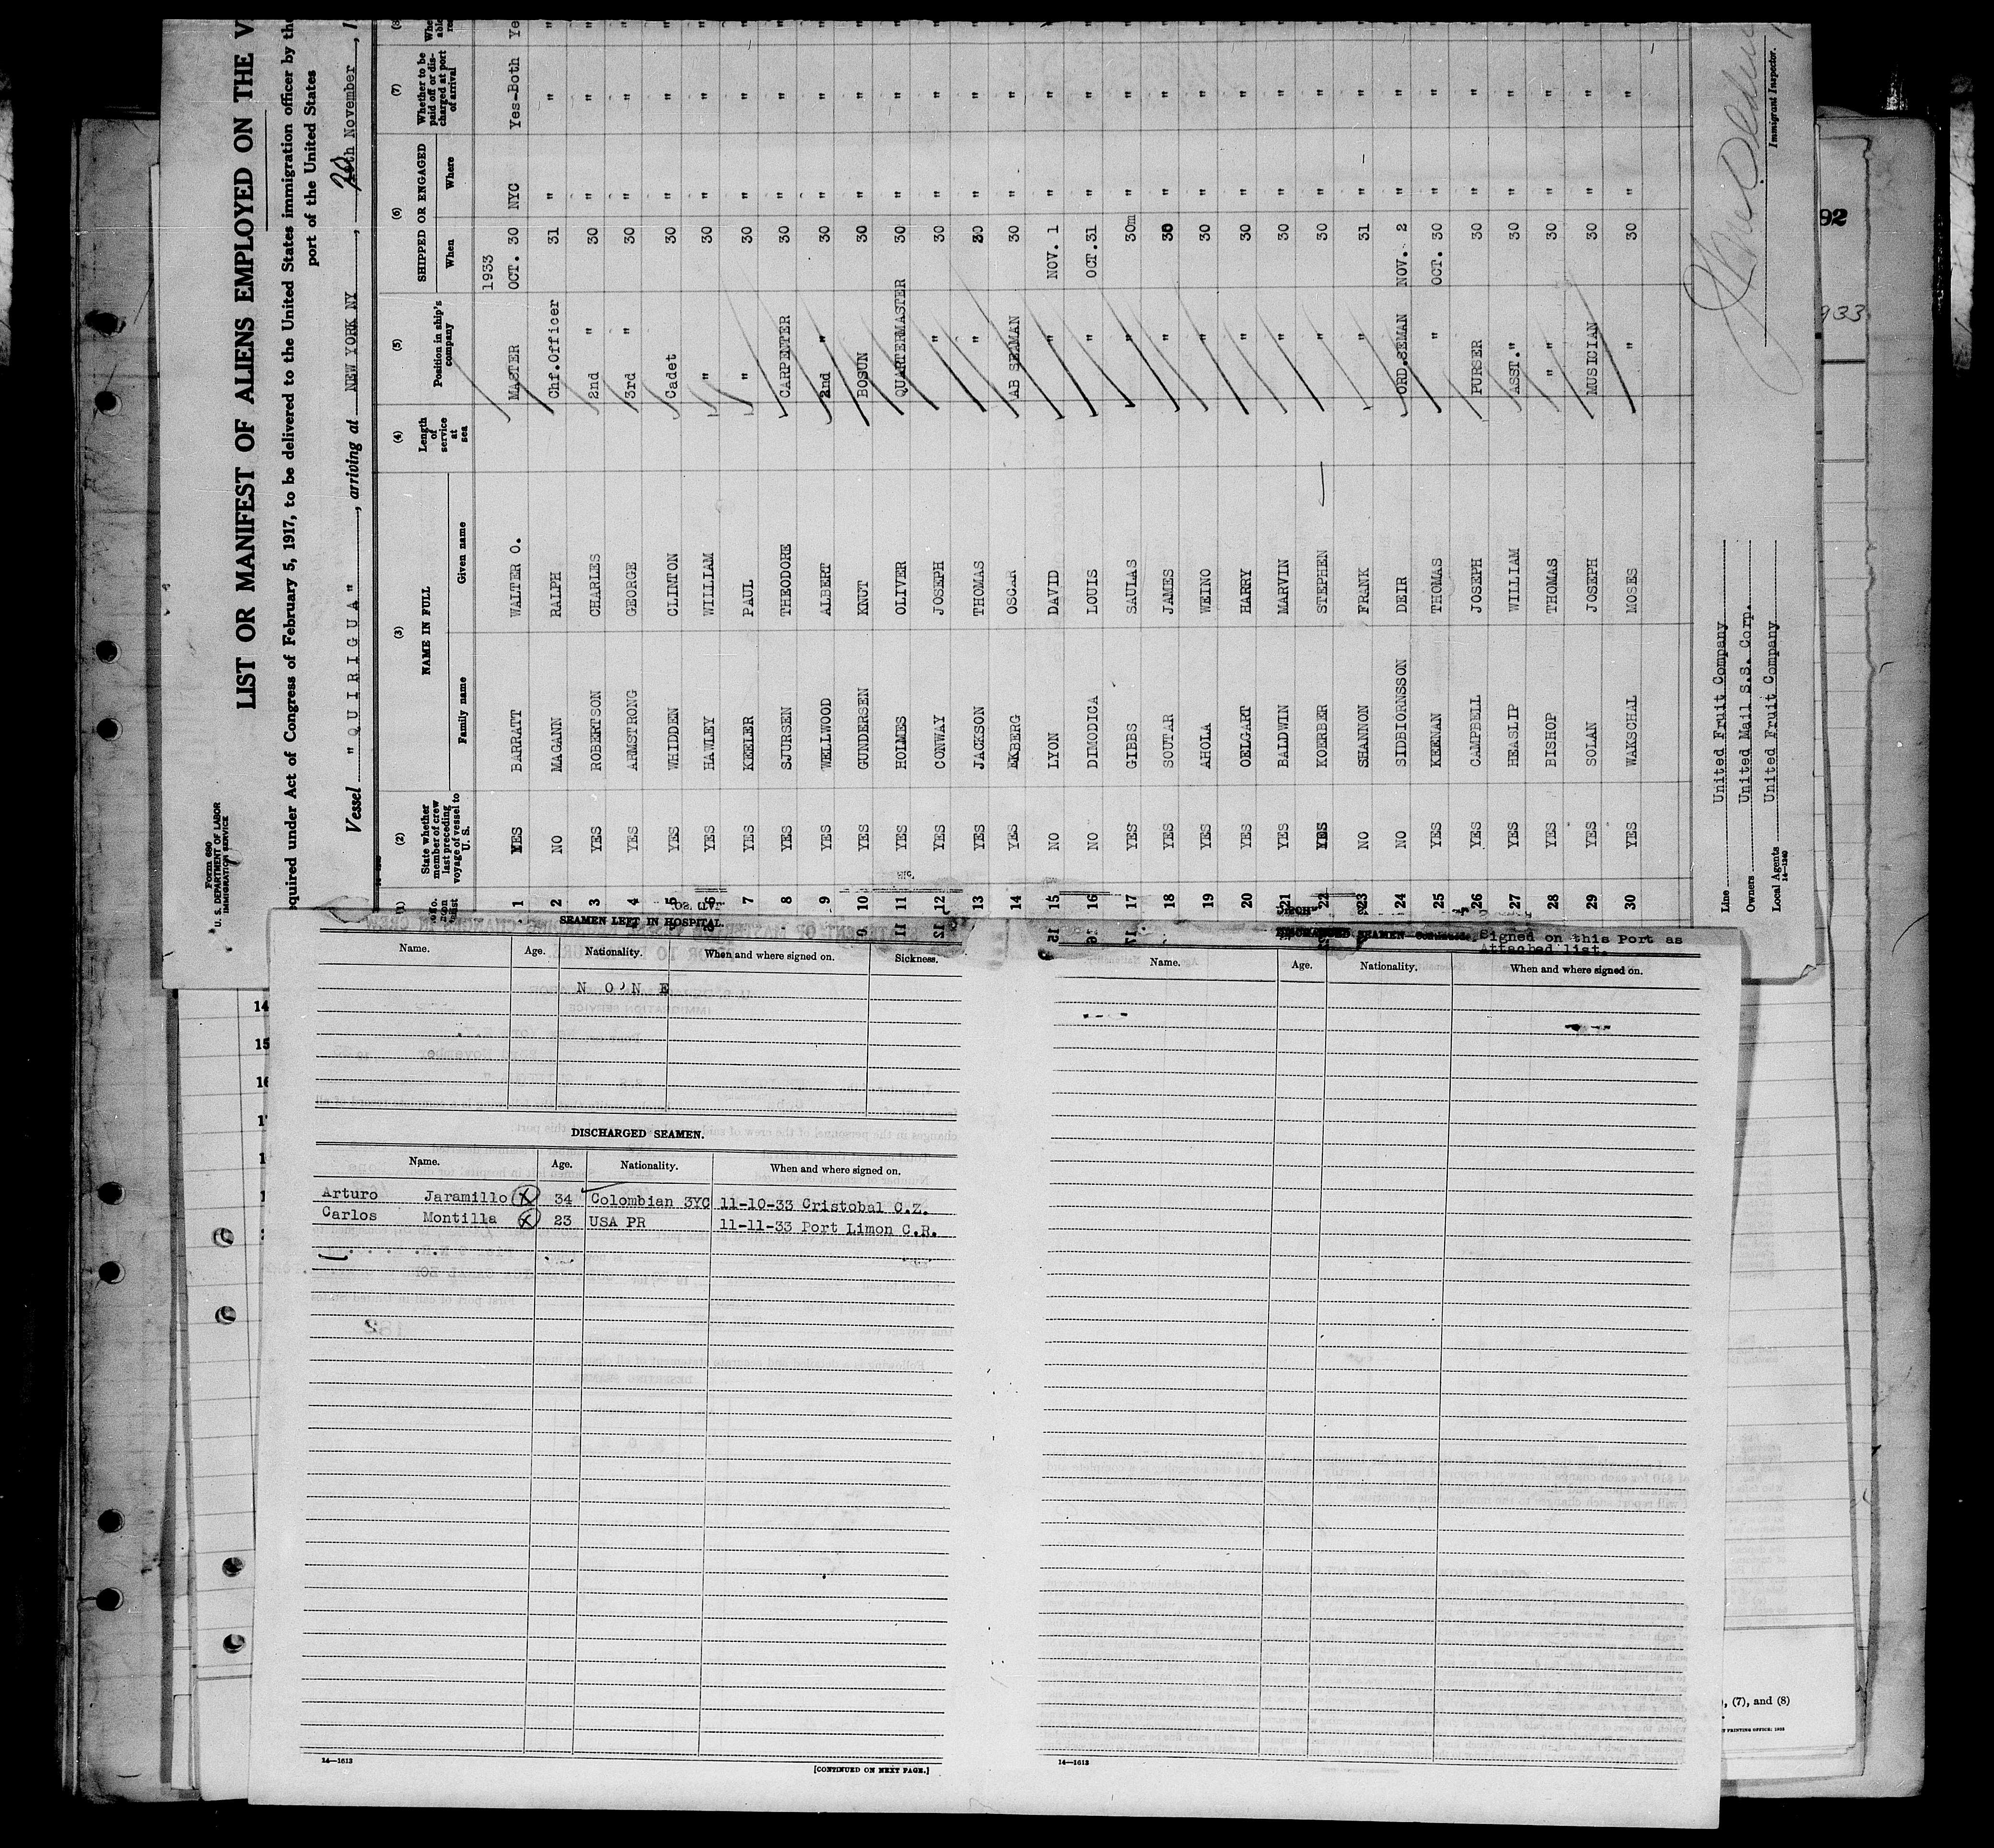 Form 689
U. S. DEPARTMENT OF LABOR
IMMIGRATION SERVICE
LIST OR MANIFEST OF ALIENS EMPLOYED ON THE V
equired under Act of Congress of February 5, 1917, to be delivered to the United States immigration officer by the
port of the United States
Vessel "QUIRIGUA", arriving at NEW YORK NY, 20th November, 1
(2) (3) (4) (5) (6) (7)
State whether member of crew last preceding voyage of vessel to U. S. NAME IN FULL Family name Given name Length of service at sea Position in ship's company SHIPPED OR ENGAGED When Where Whether to be paid off or discharged at port of arrival
1933
1 YES BARRATT WALTER O. MASTER OCT. 30 NYC Yes-Both Ye
2 NO MAGANN RALPH Chf.Officer 31 " " "
3 YES ROBERTSON CHARLES 2nd " 30 " " "
4 YES ARMSTRONG GEORGE 3rd " 30 " " "
5 YES WHIDDEN CLINTON Cadet 30 " " "
6 YES HAWLEY WILLIAM " 30 " " "
7 YES KEELER PAUL " 30 " " "
8 YES SJURSEN THEODORE CARPENTER 30 " " "
9 YES WELLWOOD ALBERT 2nd " 30 " " "
10 YES GUNDERSEN KNUT BOSUN 30 " " "
11 YES HOLMES OLIVER QUARTERMASTER 30 " " "
12 YES CONWAY JOSEPH " 30 " " "
13 YES JACKSON THOMAS " 30 " " "
14 YES EKBERG OSCAR AB SEAMAN 30 " " "
15 NO LYON DAVID " NOV. 1 " " "
16 NO DIMODICA LOUIS " OCT. 31 " " "
17 YES GIBBS SAULAS " 30m " " "
18 YES SOUTAR JAMES " 30 " " "
19 YES AHOLA WEINO " 30 " " "
20 YES OELGART HARRY " 30 " " "
21 YES BALDWIN MARVIN " 30 " " "
22 YES KOERBER STEPHEN " 30 " " "
23 NO SHANNON FRANK " 31 " " "
24 NO SIDBIORNSSON DEIR ORD.SEMAN NOV. 2 " " "
25 YES KEENAN THOMAS " OCT. 30 " " "
26 YES CAMPBELL JOSEPH PURSER 30 " " "
27 YES HEASLIP WILLIAM ASST." 30 " " "
28 YES BISHOP THOMAS " " 30 " " "
29 YES SOLAN JOSEPH MUSICIAN 30 " " "
30 YES WAKSCHAL MOSES " 30 " " "
Line United Fruit Company
Owners United Mail S.S. Corp.
Local Agents United Fruit Company
14-1240
Immigrant Inspector.
92
933
SEAMEN LEFT IN HOSPITAL.
Name. Age. Nationality. When and where signed on. Sickness.
N O N E
DISCHARGED SEAMEN.
Name. Age. Nationality. When and where signed on.
Arturo Jaramillo X 34 Colombian 3YC 11-10-33 Cristobal C.Z.
Carlos Montilla X 23 USA PR 11-11-33 Port Limon C.R.
14—1613
[CONTINUED ON NEXT PAGE.]
DISCHARGED SEAMEN—Continued. Signed on this Port as
Attached list.
Name. Age. Nationality. When and where signed on.
14—1613
14
15
16
, (7), and (8)